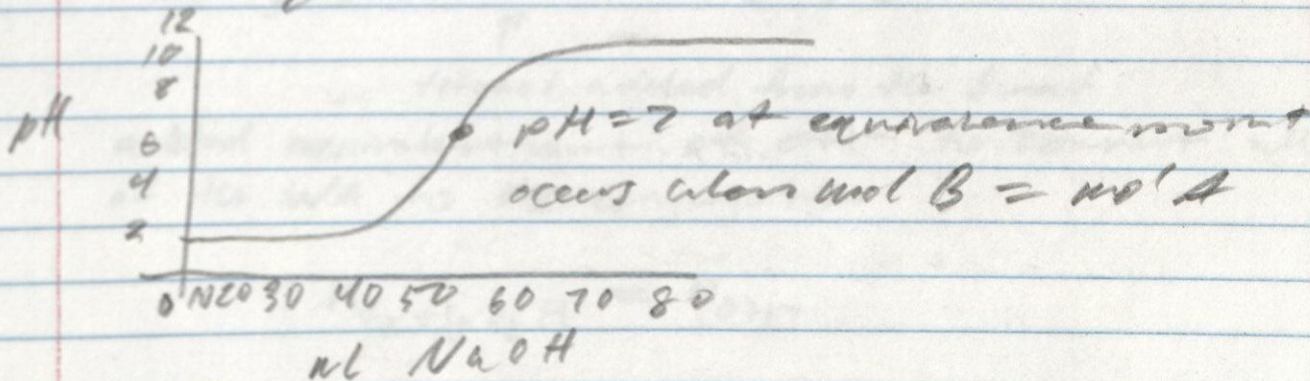 12
10
8
6
4
2
pH
pH = 7 at equivalence point
occurs when mol B = mol A
0 20 30 40 50 60 70 80
ml NaOH